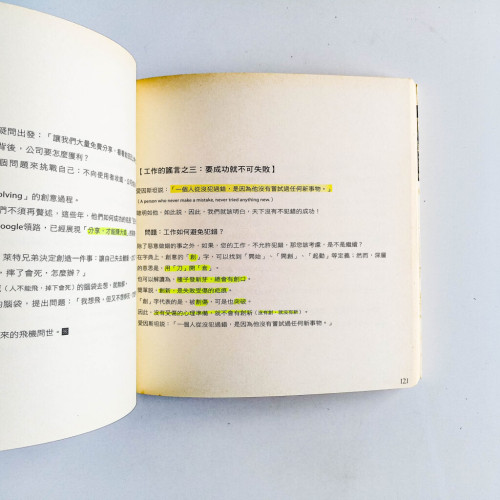 疑問出發：「讓我們大量免費分享，
背後，公司要怎麼獲利？
個問題來挑戰自己：不向使用者收費，
olving」的創意過程。
們不須再贅述，這些年，他們如何成功的
oogle領路，已經展現「分享，才能賺大錢
萊特兄弟決定創造一件事：讓自己
，摔了會死，怎麼辦？」
（人不能飛，掉下會死）的腦袋去想，
的腦袋，提出問題：「我想飛，但又不想
來的飛機問世。
【工作的謠言之三：要成功就不可失敗】
愛因斯坦說：「一個人從沒犯過錯，是因為他沒有嘗試過任何新事物。」
(A person who never make a mistake, never tried anything new.)
聰明如他，如此說，因此，我們就該明白，天下沒有不犯錯的成功！
問題：工作如何避免犯錯？
除了惡意做錯的事之外，如果，您的工作，不允許犯錯，那您該考慮，是不是繼續？
在字典上，創意的「創」字，可以找到「開始」、「開創」、「起動」等定義；然而，深層
的意思是，用「刀」開「倉」。
也可以解讀為，種子發新芽，總會有創口。
簡單說，創新，是失敗受傷的疤痕。
「創」字代表的是，被創傷，可是也突破。
因此，沒有受傷的心理準備，就不會有創新（沒有創，就沒有新）。
愛因斯坦說：「一個人從沒犯過錯，是因為他沒有嘗試過任何新事物。」
121